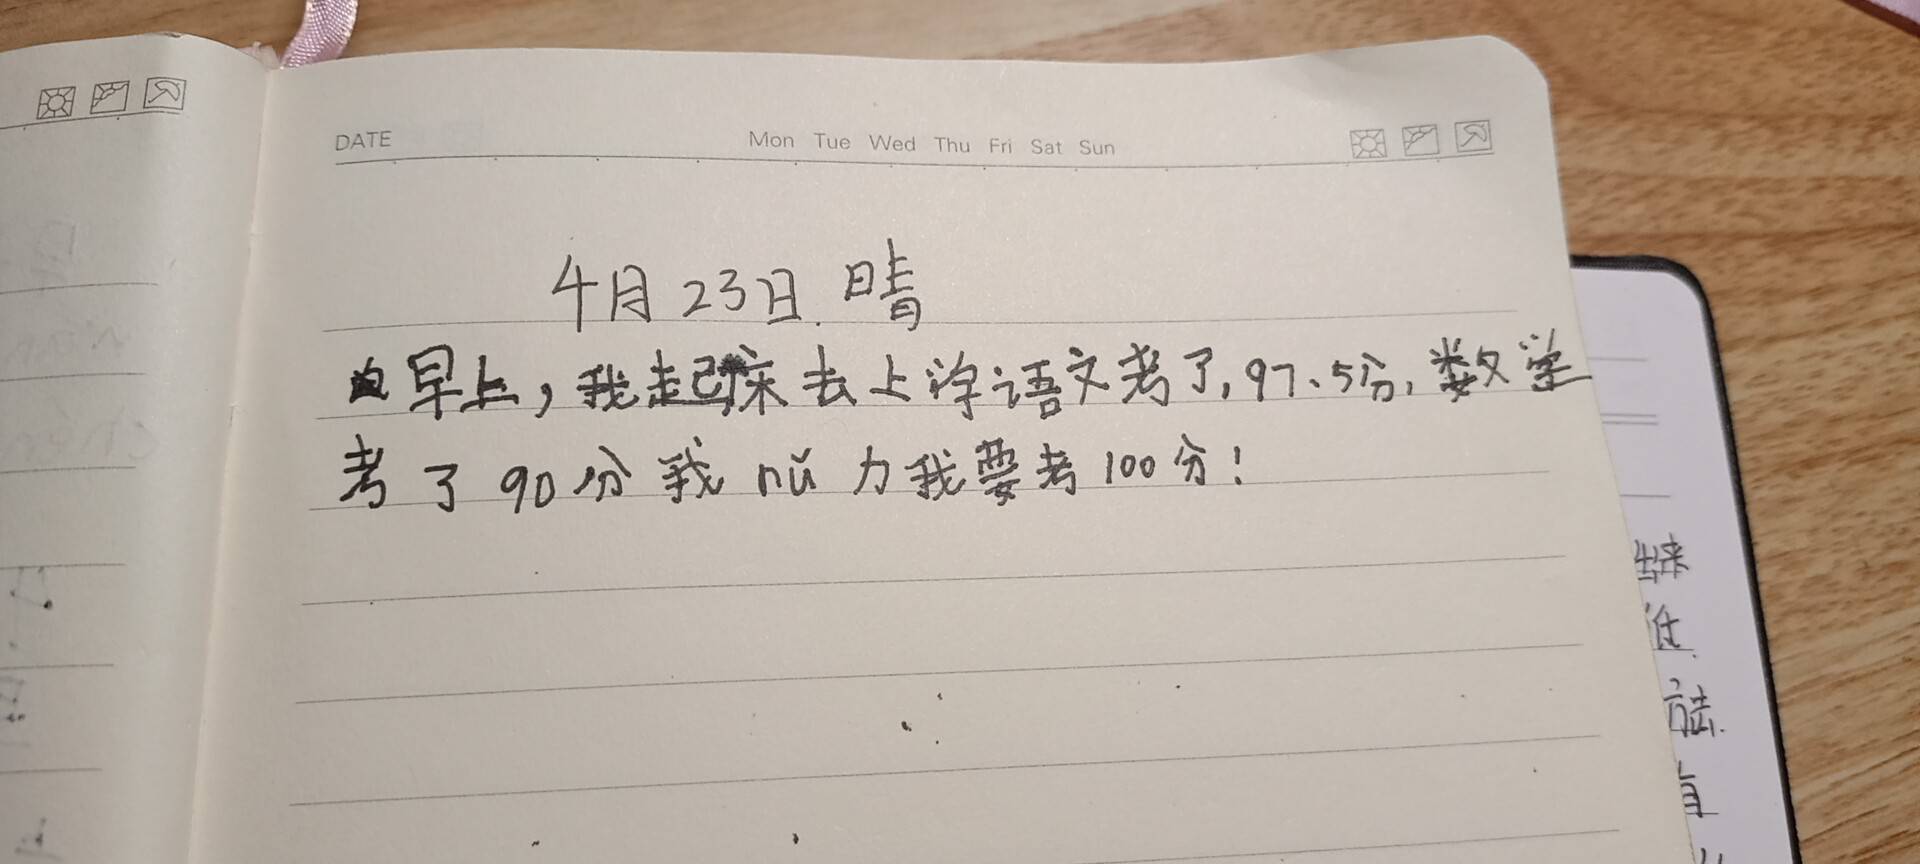 DATE Mon Tue Wed Thu Fri Sat Sun
4月23日.晴
早上,我起床去上学语文考了,97.5分,数学
考了90分我nǔ力我要考100分!
出来
住.
方法.
有